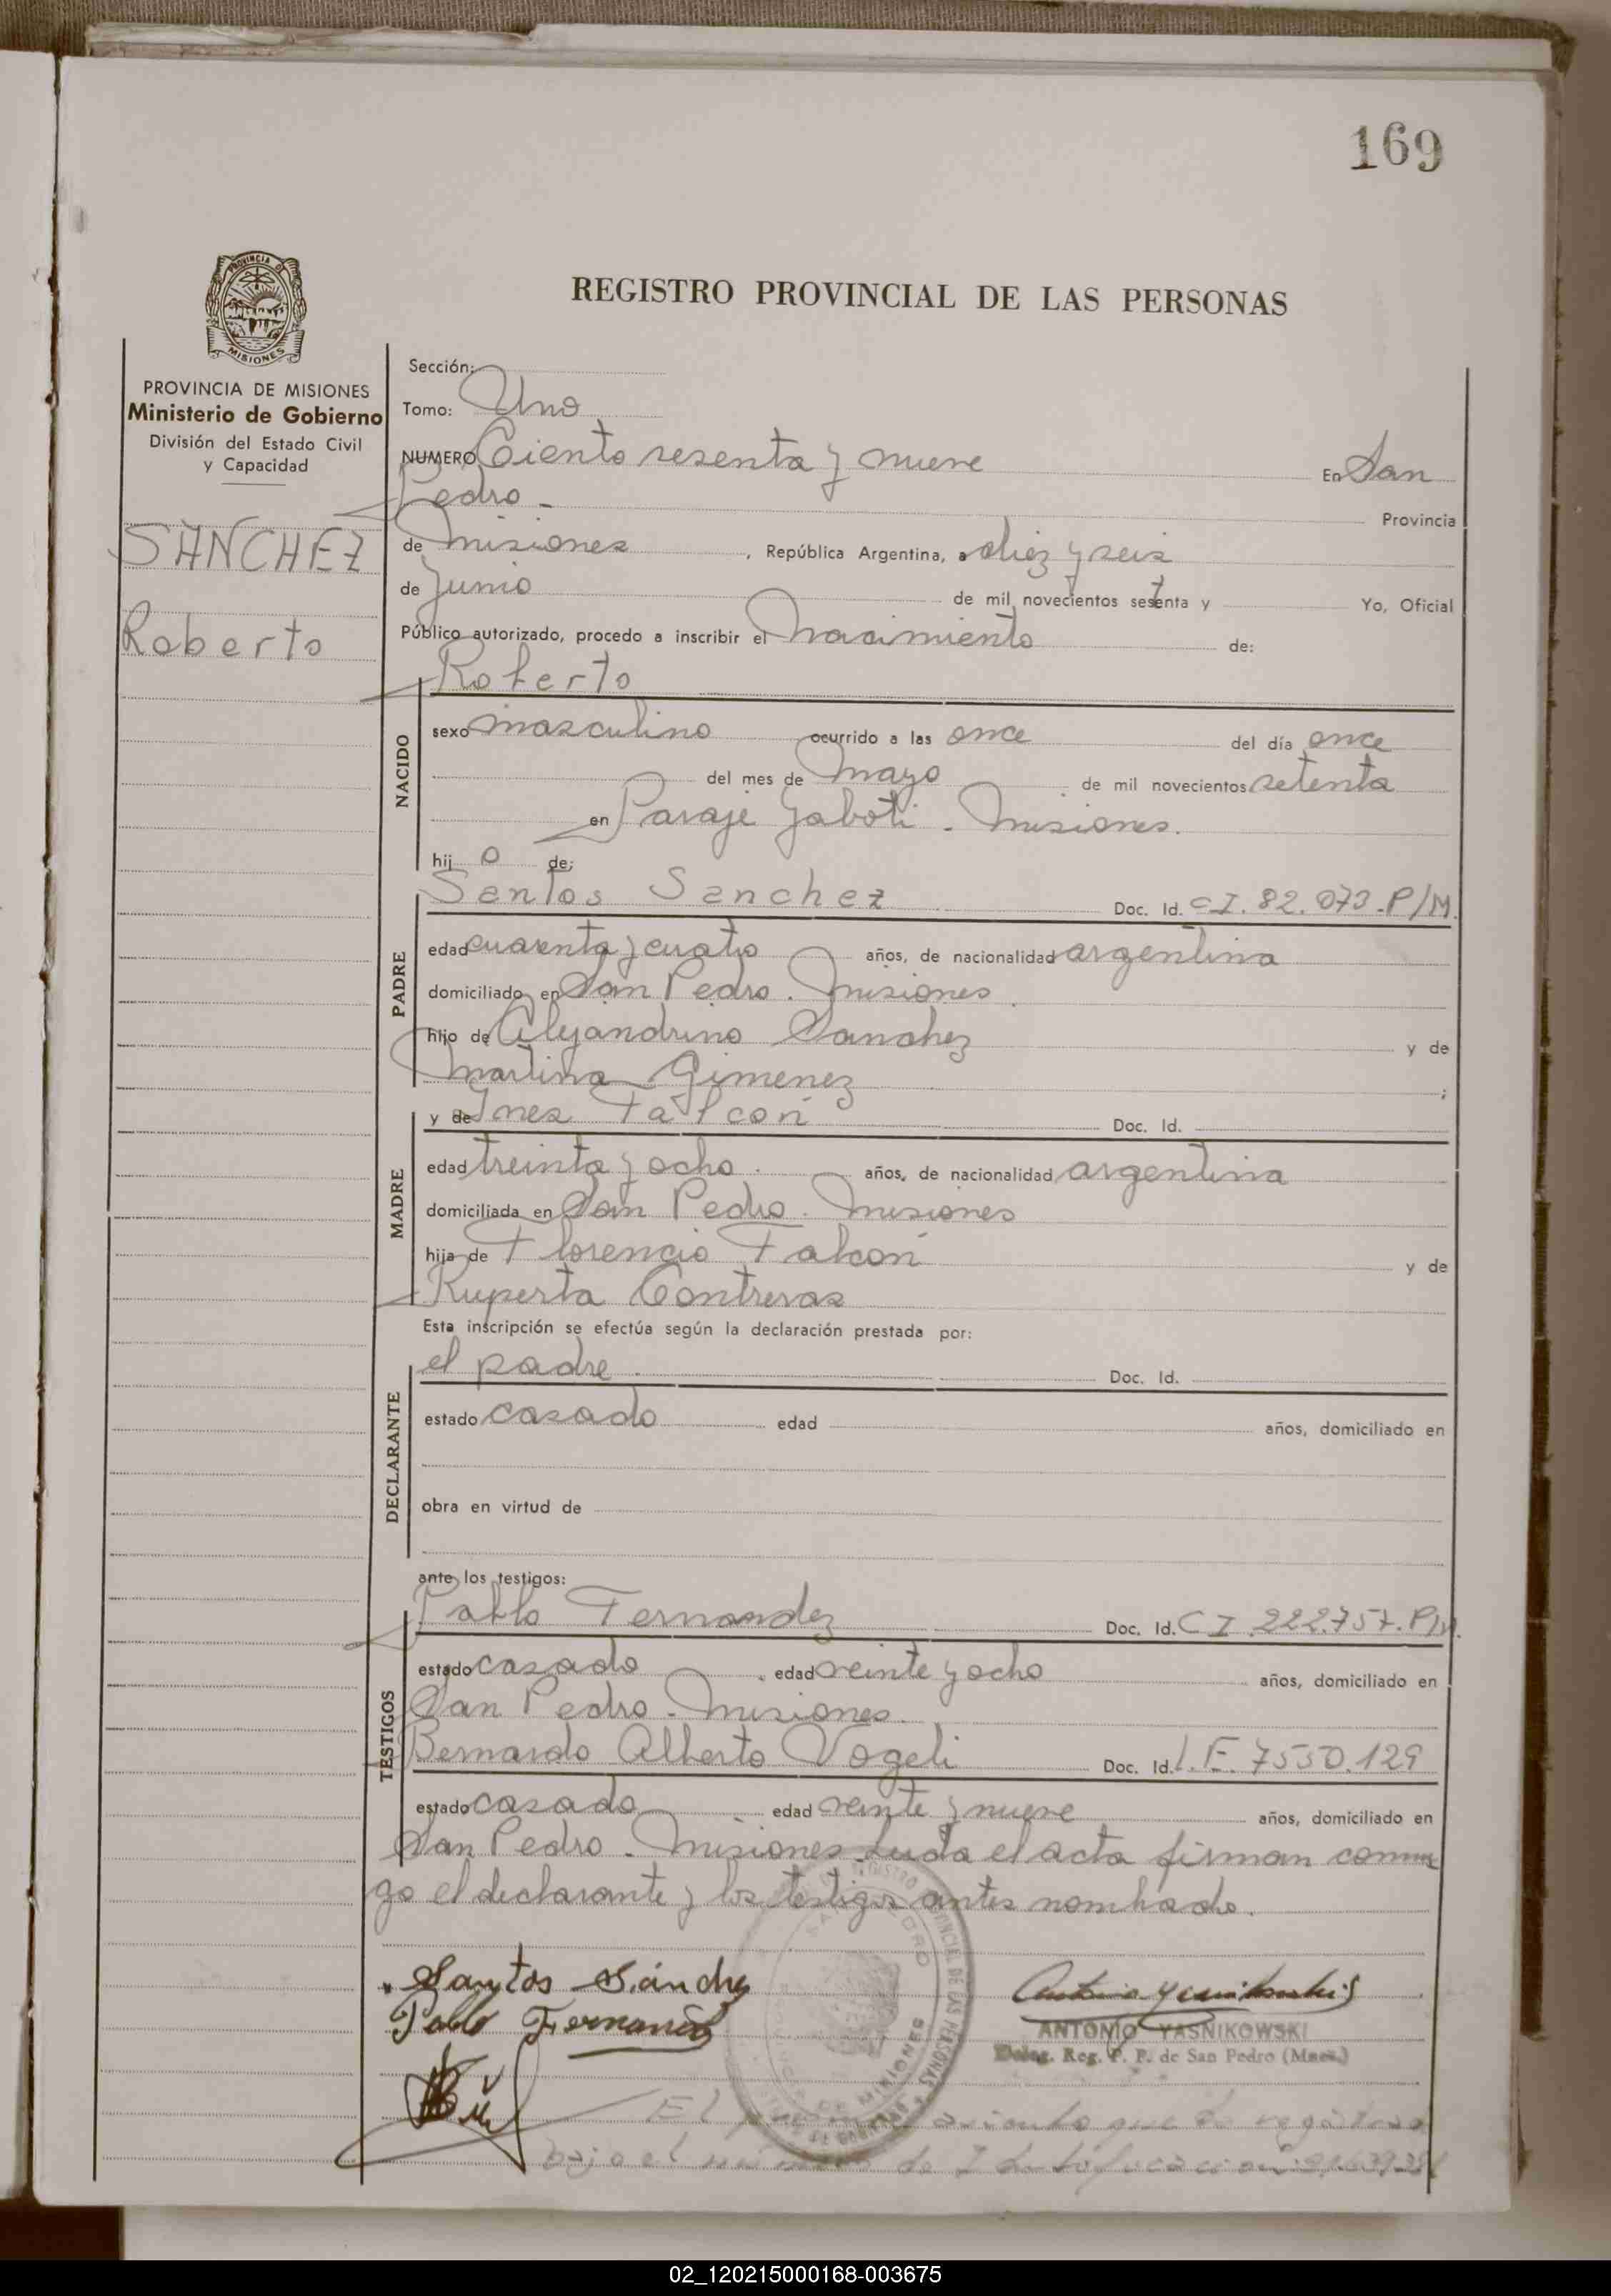 169
PROVINCIA DE
MISIONES
REGISTRO PROVINCIAL DE LAS PERSONAS
PROVINCIA DE MISIONES
Ministerio de Gobierno
División del Estado Civil
y Capacidad
SANCHEZ
Roberto
Sección:
Tomo: Uno
NUMERO Ciento sesenta y nueve En San
Pedro - Provincia
de Misiones, República Argentina, a diez y seis
de Junio de mil novecientos setenta y Yo, Oficial
Público autorizado, procedo a inscribir el Nacimiento de:
Roberto
NACIDO
sexo masculino ocurrido a las once del día once
del mes de Mayo de mil novecientos setenta
en Paraje Yaboti - Misiones.
hij o de:
Santos Sanchez Doc. Id. C.I. 82.073.P/M.
PADRE
edad cuarenta y cuatro años, de nacionalidad argentina
domiciliado en San Pedro. Misiones.
hijo de Alejandrino Sanchez y de
Martina Gimenez ;
y de Ines Falcón Doc. Id.
MADRE
edad treinta y ocho. años, de nacionalidad argentina
domiciliada en San Pedro. Misiones
hija de Florencio Falcón y de
Ruperta Contreras
Esta inscripción se efectúa según la declaración prestada por:
el padre Doc. Id.
DECLARANTE
estado casado edad años, domiciliado en
obra en virtud de
ante los testigos:
Pablo Fernandez Doc. Id. C I 222.757.P/M.
TESTIGOS
estado casado edad veinte y ocho años, domiciliado en
San Pedro - Misiones.
Bernardo Alberto Vogeli Doc. Id. L.E. 7550.129
estado casado edad veinte y nueve años, domiciliado en
San Pedro - Misiones. Leida el acta firman conmi
go el declarante y los testigos antes nombrado.
Santos Sánchez
Pablo Fernandez
ANTONIO YASNIKOWSKI
Deleg. Reg. P. P. de San Pedro (Mnes.)
El asiento que
bajo el número de
02_120215000168-003675